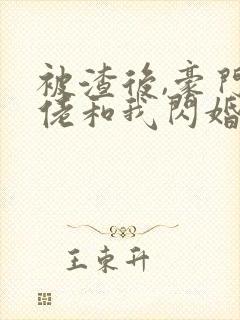 被渣後,豪門
佬和我閃婚
王東升